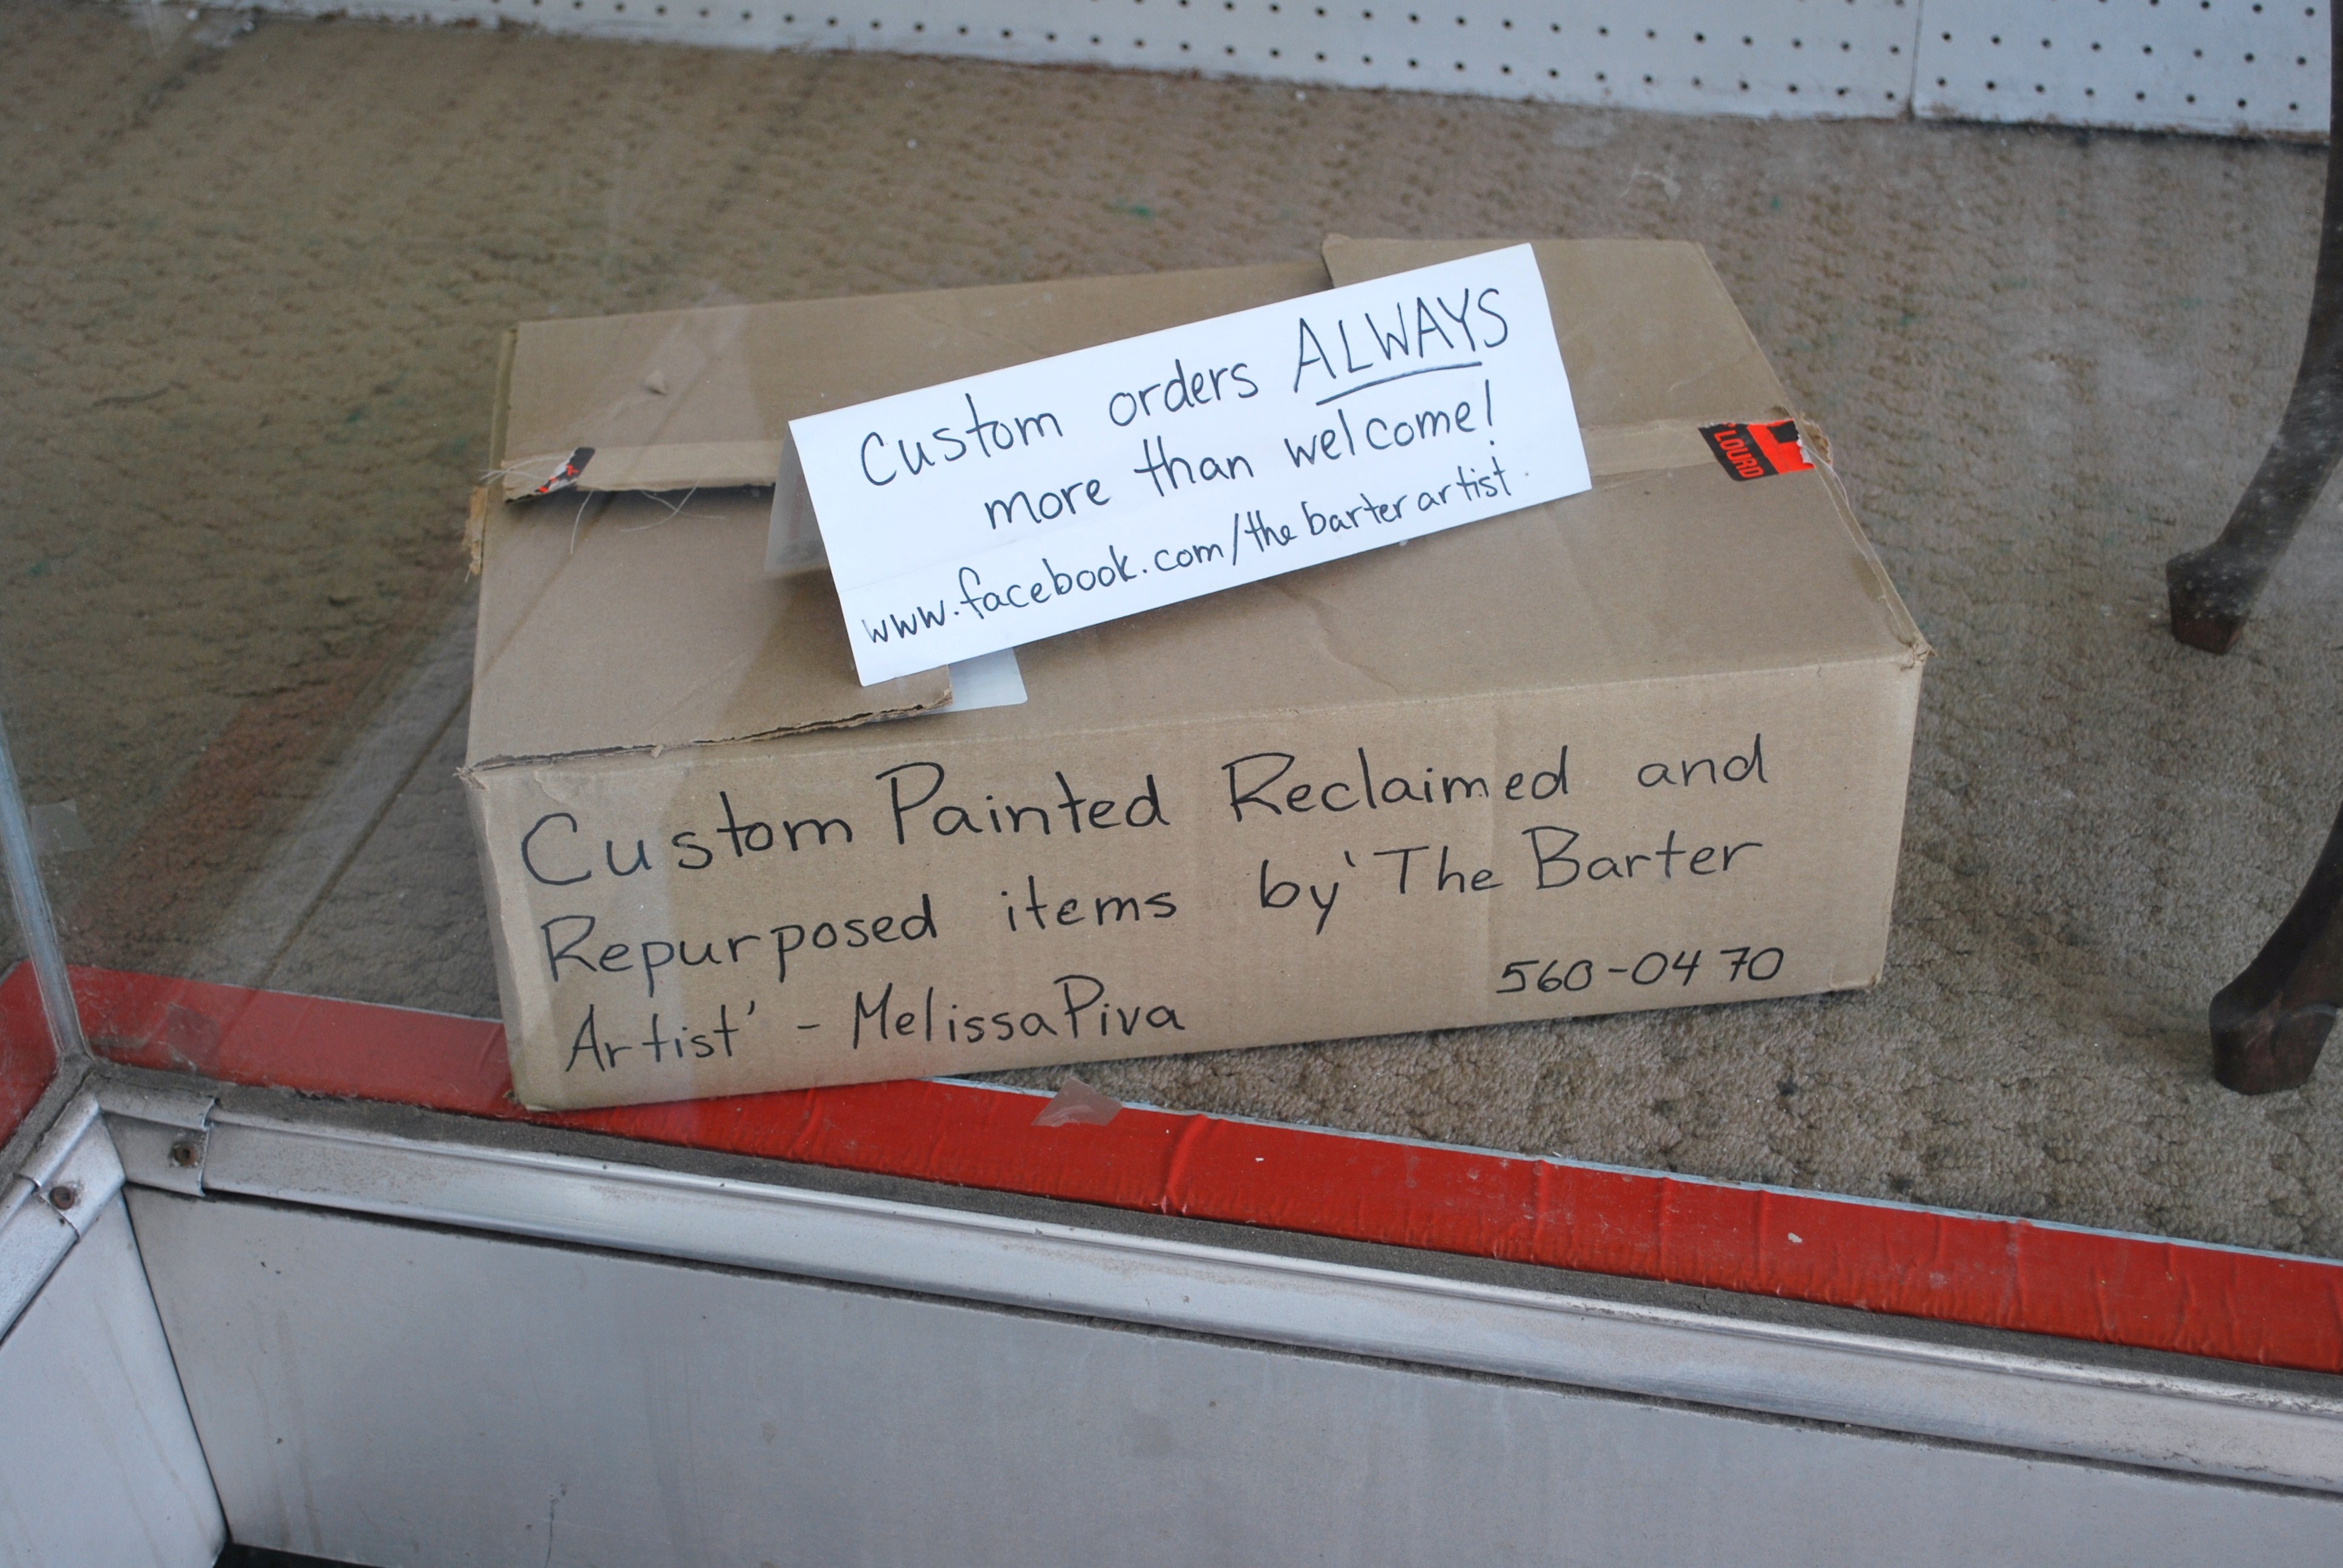 Custom orders ALWAYS
more than welcome!
www.facebook.com/thebarterartist
LOURD
Custom Painted Reclaimed and
Repurposed items by 'The Barter
Artist' - Melissa Piva
560-0470